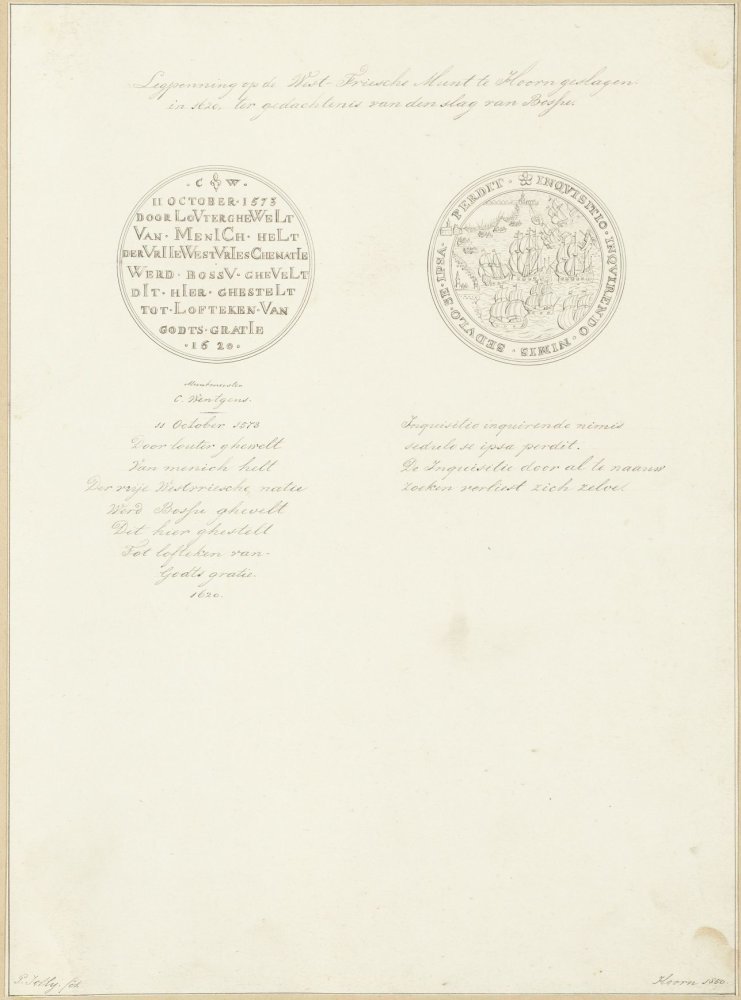 Legpenning op de West-Friesche Munt te Hoorn geslagen
in 1620, ter gedachtenis van den slag van Bossu.
· C W ·
11 OCTOBER · 1573
DOOR LOVTERGHEWELT
VAN · MENICH · HELT
DER VRIIE WESTVRIESCHE NATIE
WERD · BOSSV · GHEVELT
DIT · HIER · GHESTELT
TOT · LOFTEKEN · VAN
GODTS · GRATIE
· 1620 ·
INQVISITIO · INQVIRENDO · NIMIS · SEDVLO · SE · IPSA · PERDIT ·
Muntmeester
C. Wentgens.
11 October 1573
Door louter ghewelt
Van menich helt
Der vrije Westvriesche natie
Werd Bossu ghevelt
Dit hier ghestelt
Tot lofteken van
Godts gratie.
1620.
Inquisitio inquirende nimis
sedulo se ipsa perdit.
De Inquisitie door al te naauw
zoeken verliest zich zelve.
Hoorn 1860.